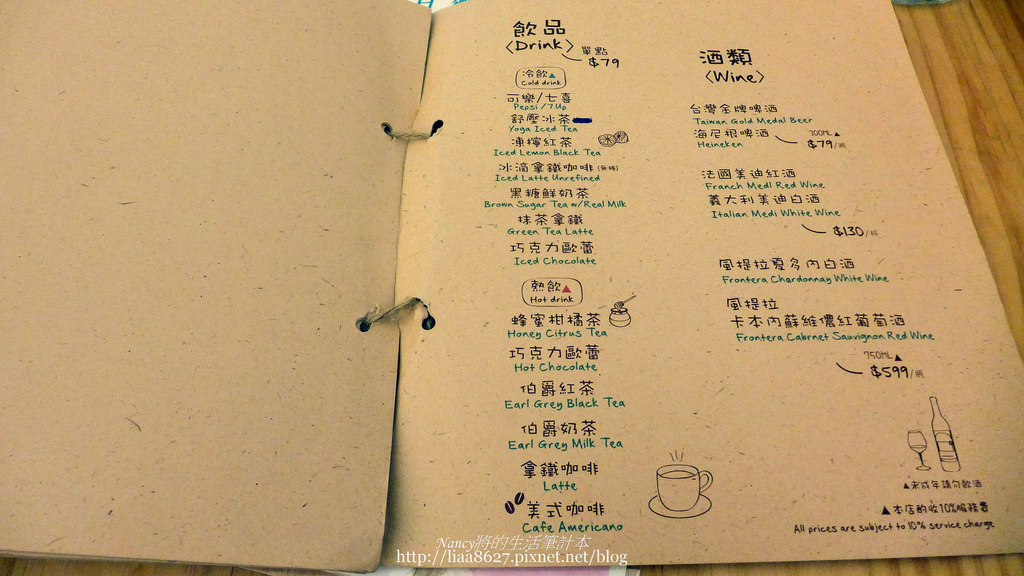 飲品
〈Drink〉
單點
$79
冷飲▲
Cold drink
可樂/七喜
Pepsi / 7.Up
舒壓冰茶
Yoga Iced Tea
凍檸紅茶
Iced Lemon Black Tea
冰滴拿鐵咖啡(無糖)
Iced Latte Unrefined
黑糖鮮奶茶
Brown Sugar Tea w/Real Milk
抹茶拿鐵
Green Tea Latte
巧克力歐蕾
Iced Chocolate
熱飲▲
Hot drink
蜂蜜柑橘茶
Honey Citrus Tea
巧克力歐蕾
Hot Chocolate
伯爵紅茶
Earl Grey Black Tea
伯爵奶茶
Earl Grey Milk Tea
拿鐵咖啡
Latte
美式咖啡
Cafe Americano
酒類
〈Wine〉
台灣金牌啤酒
Taiwan Gold Medal Beer
海尼根啤酒
Heineken
$79/瓶
法國美迪紅酒
Franch Medi Red Wine
義大利美迪白酒
Italian Medi White Wine
$130/杯
風提拉夏多內白酒
Frontera Chardonnay White Wine
風提拉
卡本內蘇維儂紅葡萄酒
Frontera Cabrnet Sauvignon Red Wine
750ML▲
$599/瓶
▲未成年請勿飲酒
▲本店酌收10%服務費
All prices are subject to 10% service charge
Nancy將的生活筆計本
http://liaa8627.pixnet.net/blog